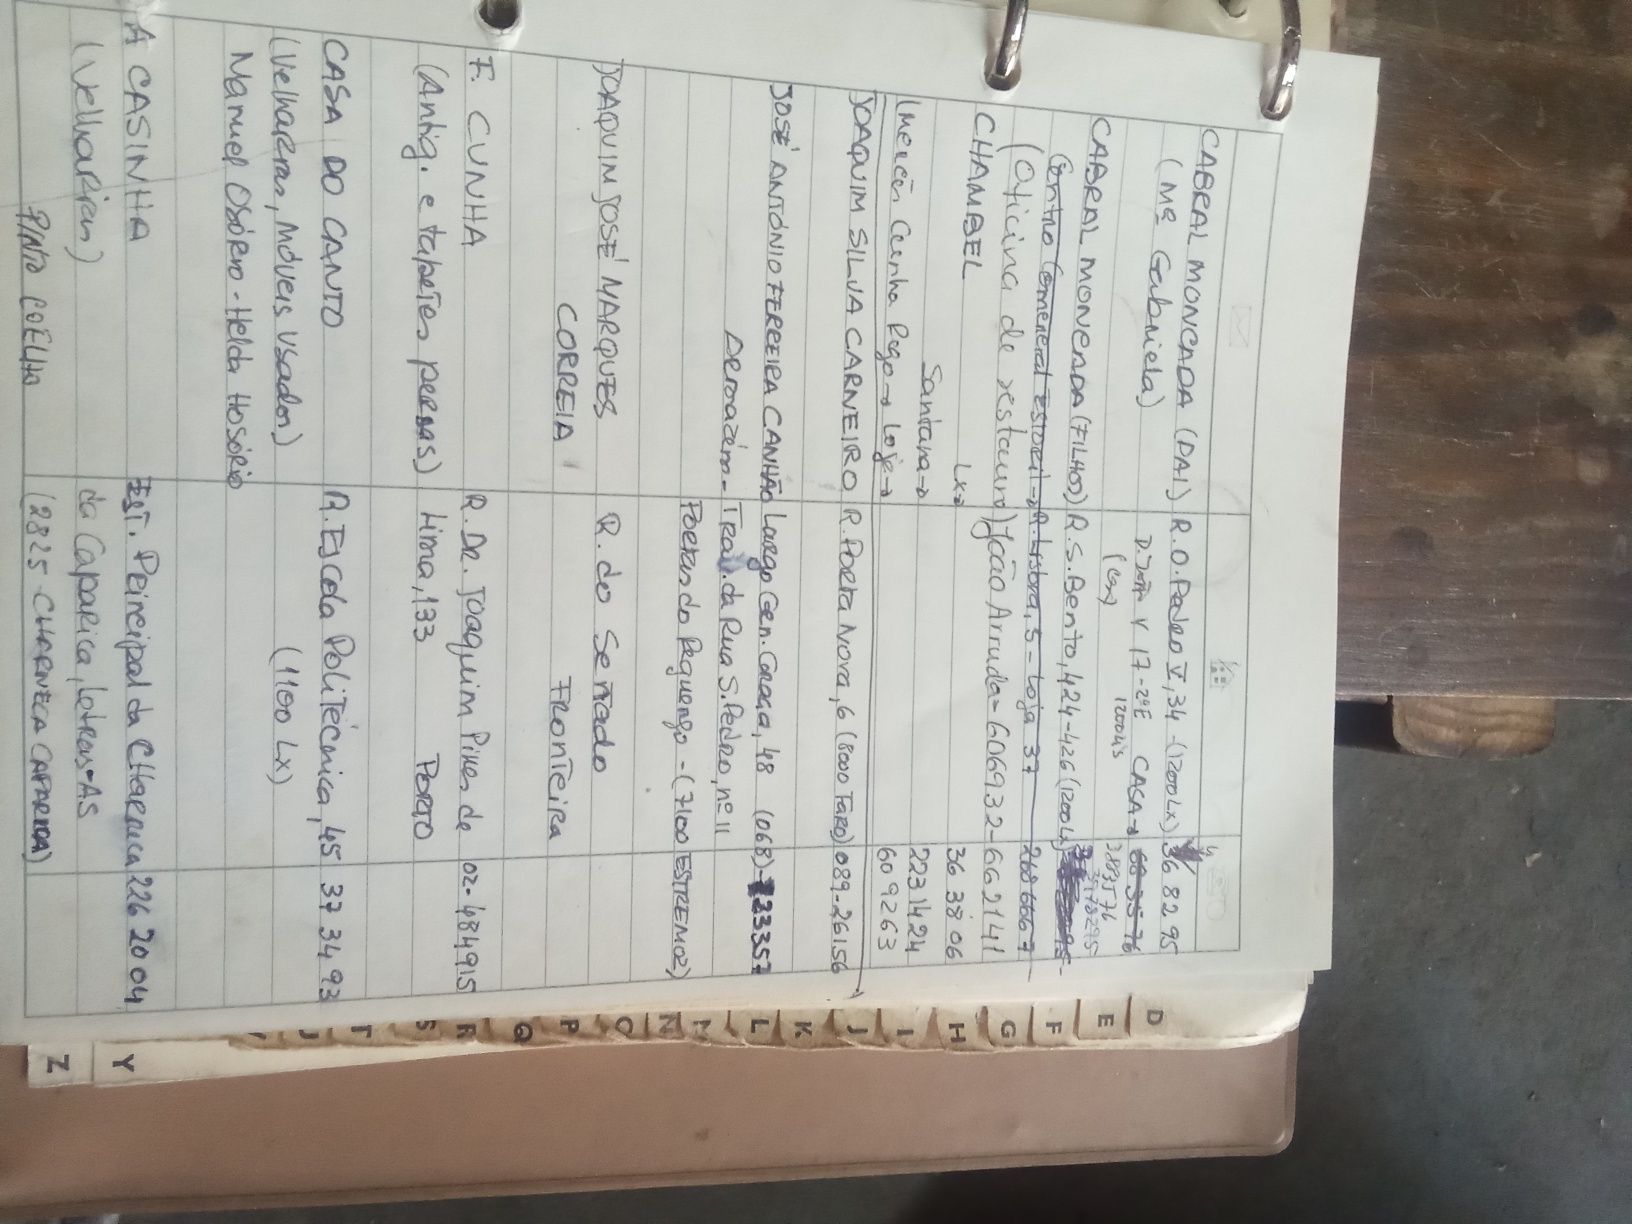 CABRAL MONCADA (PAI) R. D. Pedro V, 34 - (1200 Lx) 36 82 95
(Mª Gabriela) D. João V 17-2ºE CASA → 68 35 76
1200 Lx 3883576
CABRAL MONCADA (FILHO) R. S. Bento, 424-426 (1200 Lx) 3978295
Centro Comercial Estoril → R. Lisboa, 5 - Loja 37 2686667
(Oficina de restauro) João Arruda = 606932 - 662141
CHAMBEL Lx → 36 38 06
Santana → 2231424
Cunha Rego → Loja → 609263
JOAQUIM SILVA CARNEIRO R. Porta Nova, 6 (8000 Faro) 089-26156
JOSÉ ANTÓNIO FERREIRA CANHÃO Largo Gen. Graça, 48 (068)-23357
Armazém - Trav. da Rua S. Pedro, nº 11
Portas do - (7100 ESTREMOZ)
JOAQUIM JOSÉ MARQUES R. do Senado
CORREIA Fronteira
F. CUNHA R. Dr. Joaquim Pires de 02-484915
(Antig. e tapetes persas) Lima, 133 PORTO
CASA DO CANTO R. Escola Politécnica, 45 37 34 93
(Velharias, Móveis Usados) (1100 Lx)
Manuel Osório - Helda Hosório
A CASINHA EST. Principal da Charneca 226 20 04
(Velharias) da Caparica, Letras AS
PINTO COELHO (2825 CHARNECA CAPARICA)
D
E
F
G
H
I
J
K
L
M
N
O
P
Q
R
S
T
Y
Z